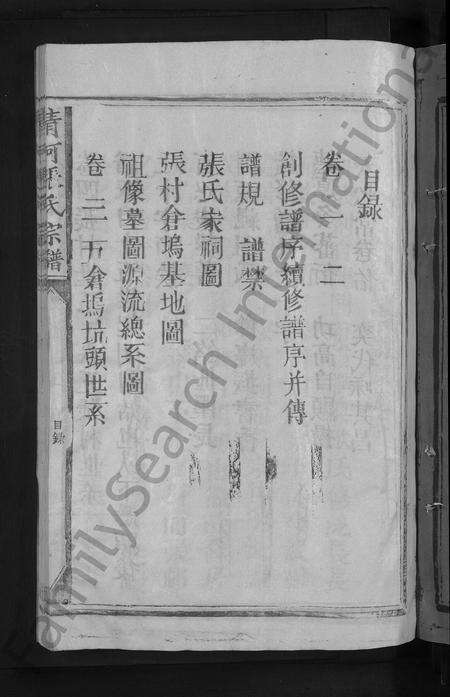 目錄
卷一 二
創修譜序續修譜序并傳
譜規 譜禁
張氏家祠圖
張村倉塢基地圖
祖像墓圖源流總系圖
卷三 下倉塢坑頭世系
清河張氏宗譜
目錄
FamilySearch International